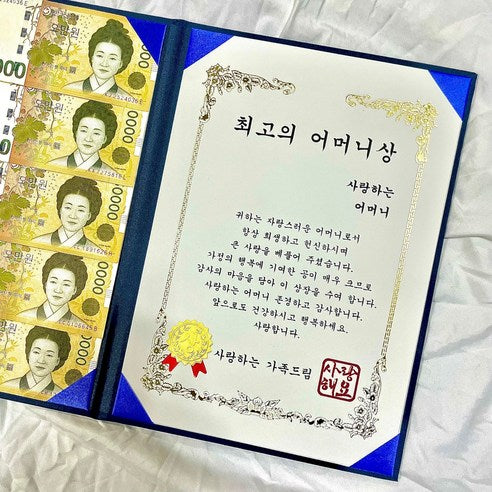 오만원
오만원
오만원
오만원
오만원
최고의 어머니상
사랑하는
어머니
귀하는 자랑스러운 어머니로서
항상 희생하고 헌신하시며
큰 사랑을 베풀어 주셨습니다.
가정의 행복에 기여한 공이 매우 크므로
감사의 마음을 담아 이 상장을 수여 합니다.
사랑하는 어머니 존경하고 감사합니다.
앞으로도 건강하시고 행복하세요.
사랑합니다.
사랑하는 가족드림
사랑
해요